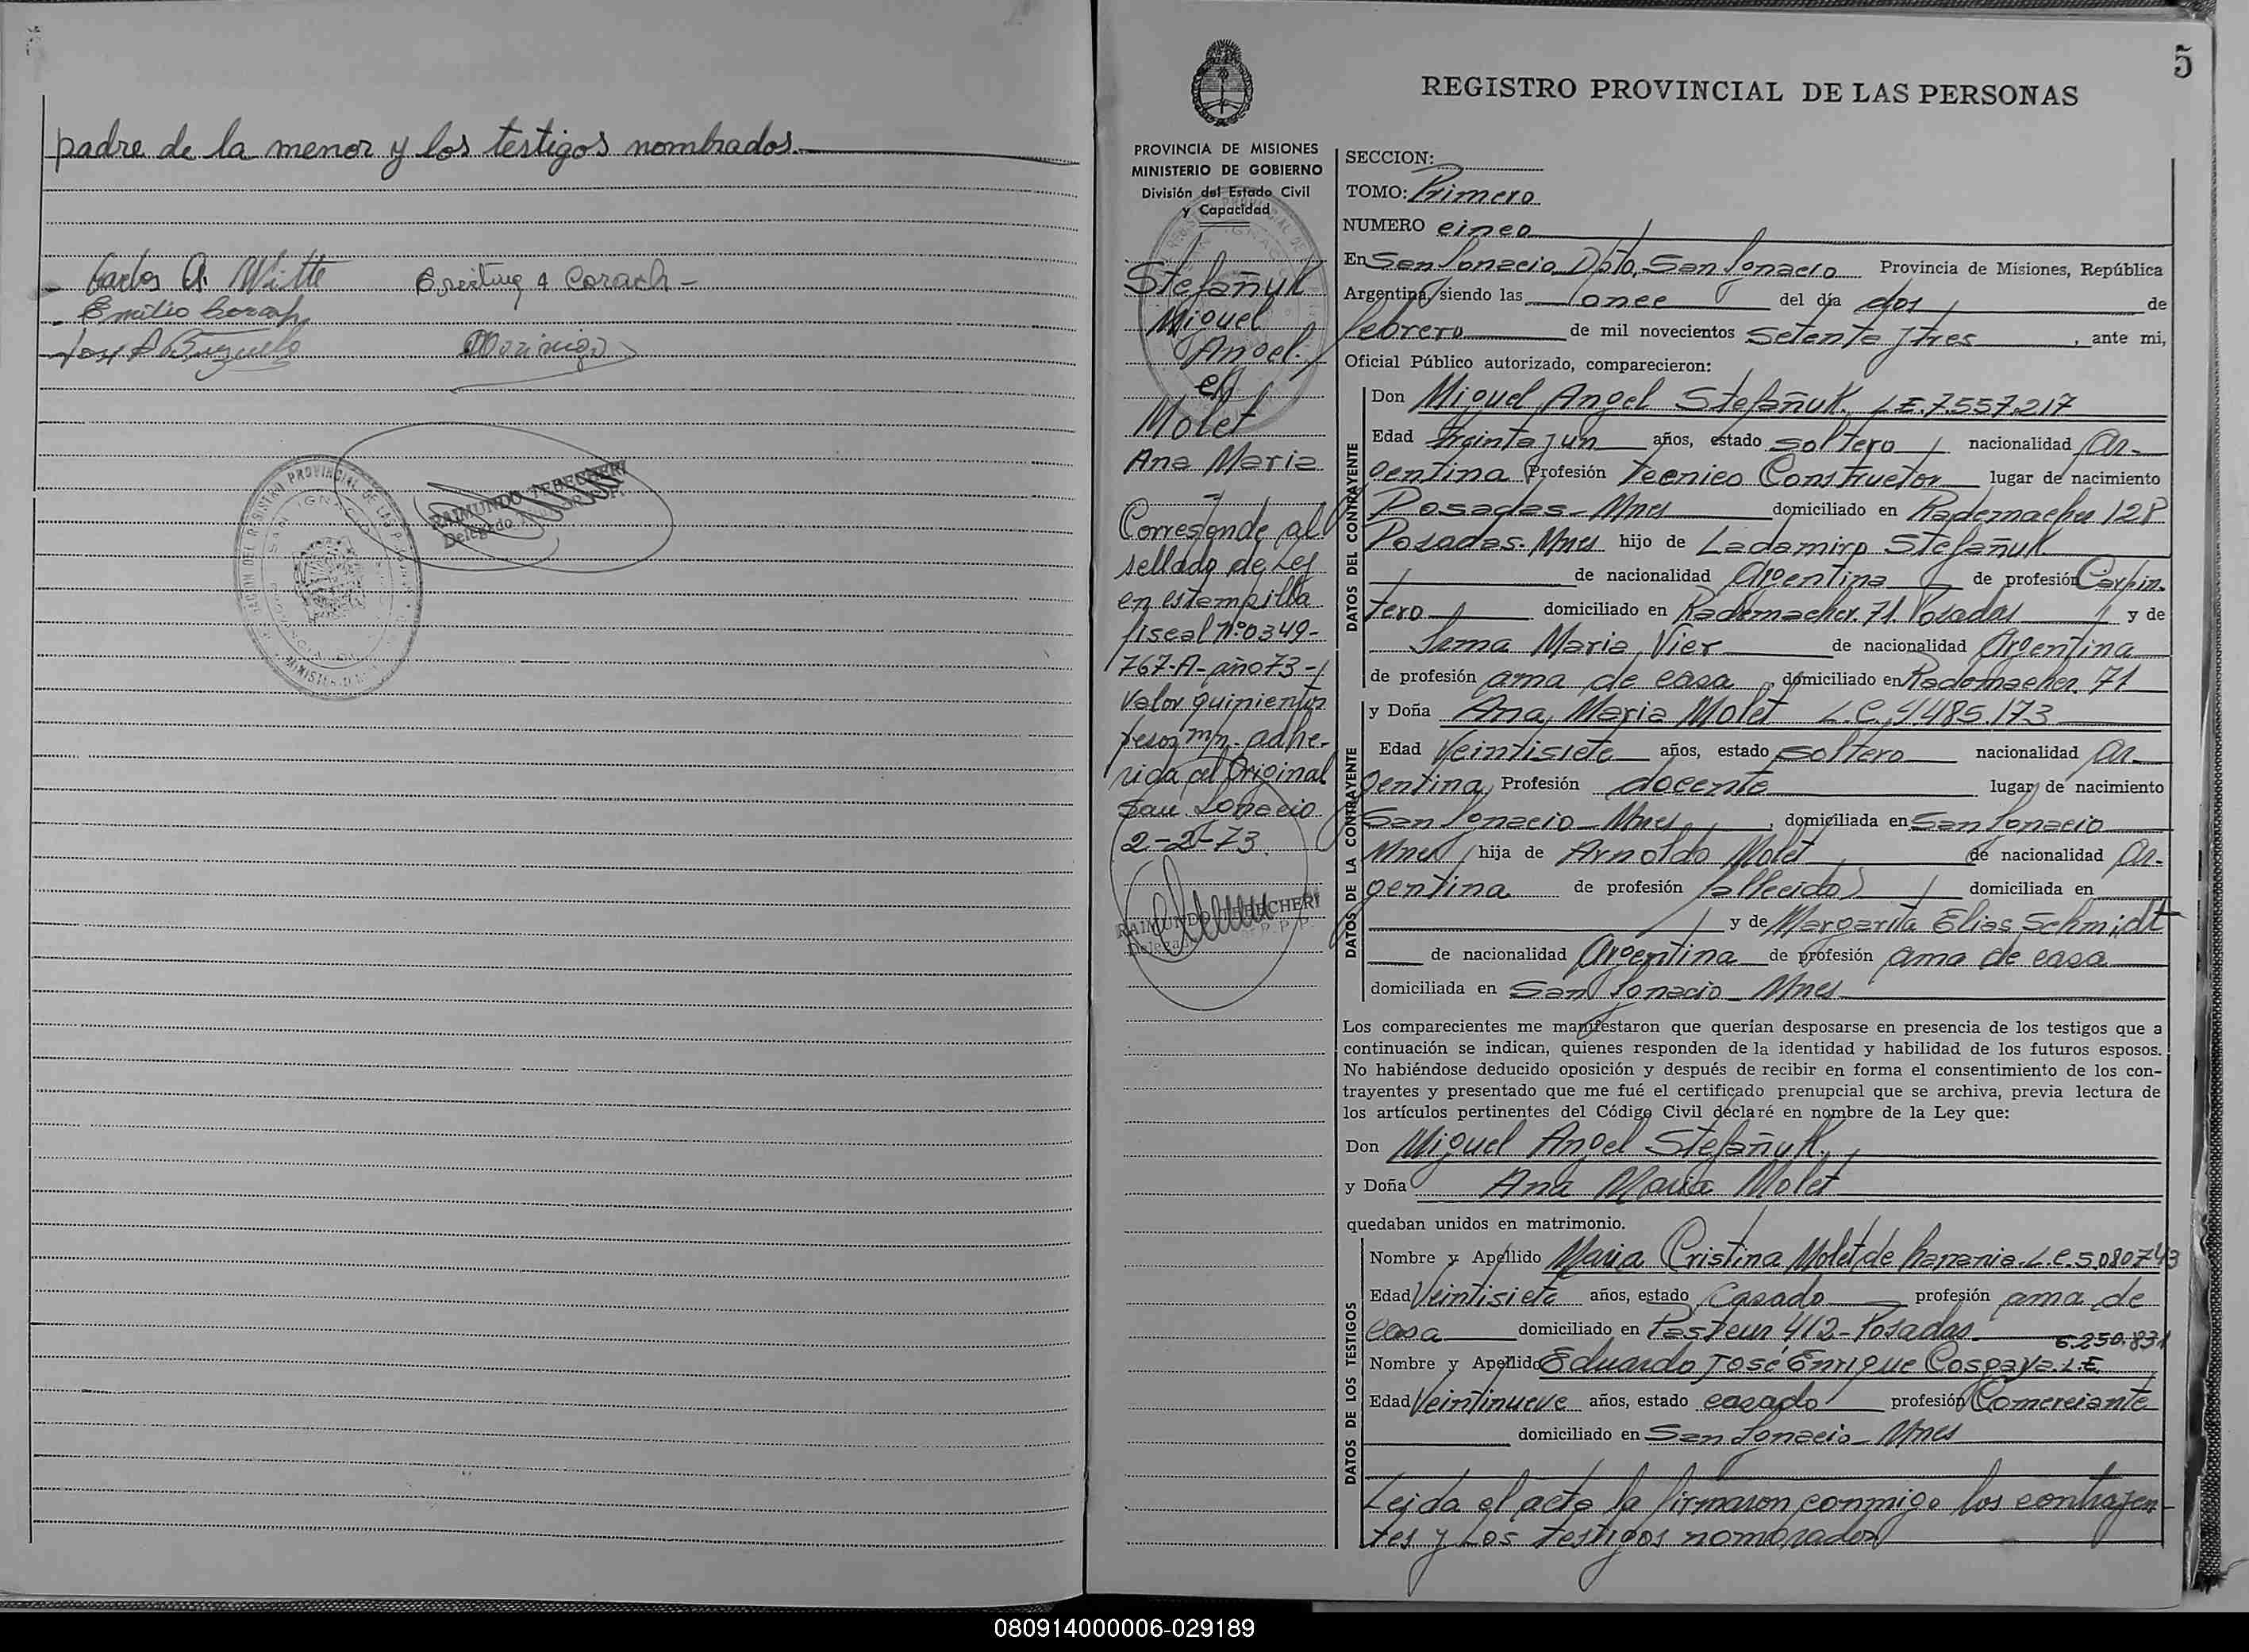 padre de la menor y los testigos nombrados.
Carlos A. Witte
Corach
Emilio Corach
RAIMUNDO TEBECHERI
Delegado
5
REGISTRO PROVINCIAL DE LAS PERSONAS
PROVINCIA DE MISIONES
MINISTERIO DE GOBIERNO
División del Estado Civil
y Capacidad
Stefañuk
Miguel
Angel.
en
Molet
Ana Maria
Corresponde al
sellado de Ley
en estampilla
fiscal Nº0349-
767-A-año73-y
valor quinientos
pesos m/n. adhe-
rida al Original
San Ignacio
2-2-73
RAIMUNDO TEBECHERI
Delegado R. P. P.
SECCION:
TOMO: Primero
NUMERO cinco
En San Ignacio Dpto, San Ignacio Provincia de Misiones, República
Argentina, siendo las once del día dos de
febrero de mil novecientos setenta y tres, ante mi,
Oficial Público autorizado, comparecieron:
DATOS DEL CONTRAYENTE
Don Miguel Angel Stefañuk. L.E.7.557.217
Edad treinta y un años, estado soltero nacionalidad Ar-
gentina Profesión Tecnico Constructor lugar de nacimiento
Posadas-Mnes domiciliado en Rademacher 128
Posadas. Mnes hijo de Ladamiro Stefañuk
de nacionalidad Argentina de profesión Carpin-
tero domiciliado en Rademacher.71.Posadas y de
Irma Maria Vier de nacionalidad Argentina
de profesión ama de casa, domiciliado en Rademacher. 71
DATOS DE LA CONTRAYENTE
y Doña Ana Maria Molet L.C. 4485.173
Edad Veintisiete años, estado soltero nacionalidad Ar-
gentina, Profesión docente lugar de nacimiento
San Ignacio-Mnes, domiciliada en San Ignacio
Mnes hija de Arnoldo Molet de nacionalidad Ar-
gentina de profesión (fallecido) domiciliada en
y de Margarita Elias Schmidt
de nacionalidad Argentina de profesión ama de casa
domiciliada en San Ignacio-Mnes
Los comparecientes me manifestaron que querían desposarse en presencia de los testigos que a
continuación se indican, quienes responden de la identidad y habilidad de los futuros esposos.
No habiéndose deducido oposición y después de recibir en forma el consentimiento de los con-
trayentes y presentado que me fué el certificado prenupcial que se archiva, previa lectura de
los artículos pertinentes del Código Civil declaré en nombre de la Ley que:
Don Miguel Angel Stefañuk.
y Doña Ana Maria Molet
quedaban unidos en matrimonio.
DATOS DE LOS TESTIGOS
Nombre y Apellido Maria Cristina Molet de Hanania.L.C.5.080743
Edad Veintisiete años, estado Casado profesión ama de
casa domiciliado en Pasteur 412-Posadas
6.250.831
Nombre y Apellido Eduardo José Enrique Cosgaya.L.E.
Edad Veintinueve años, estado casado profesión Comerciante
domiciliado en San Ignacio-Mnes
Leida el acta la firmaron conmigo los contrayen-
tes y los testigos nombrados
080914000006-029189